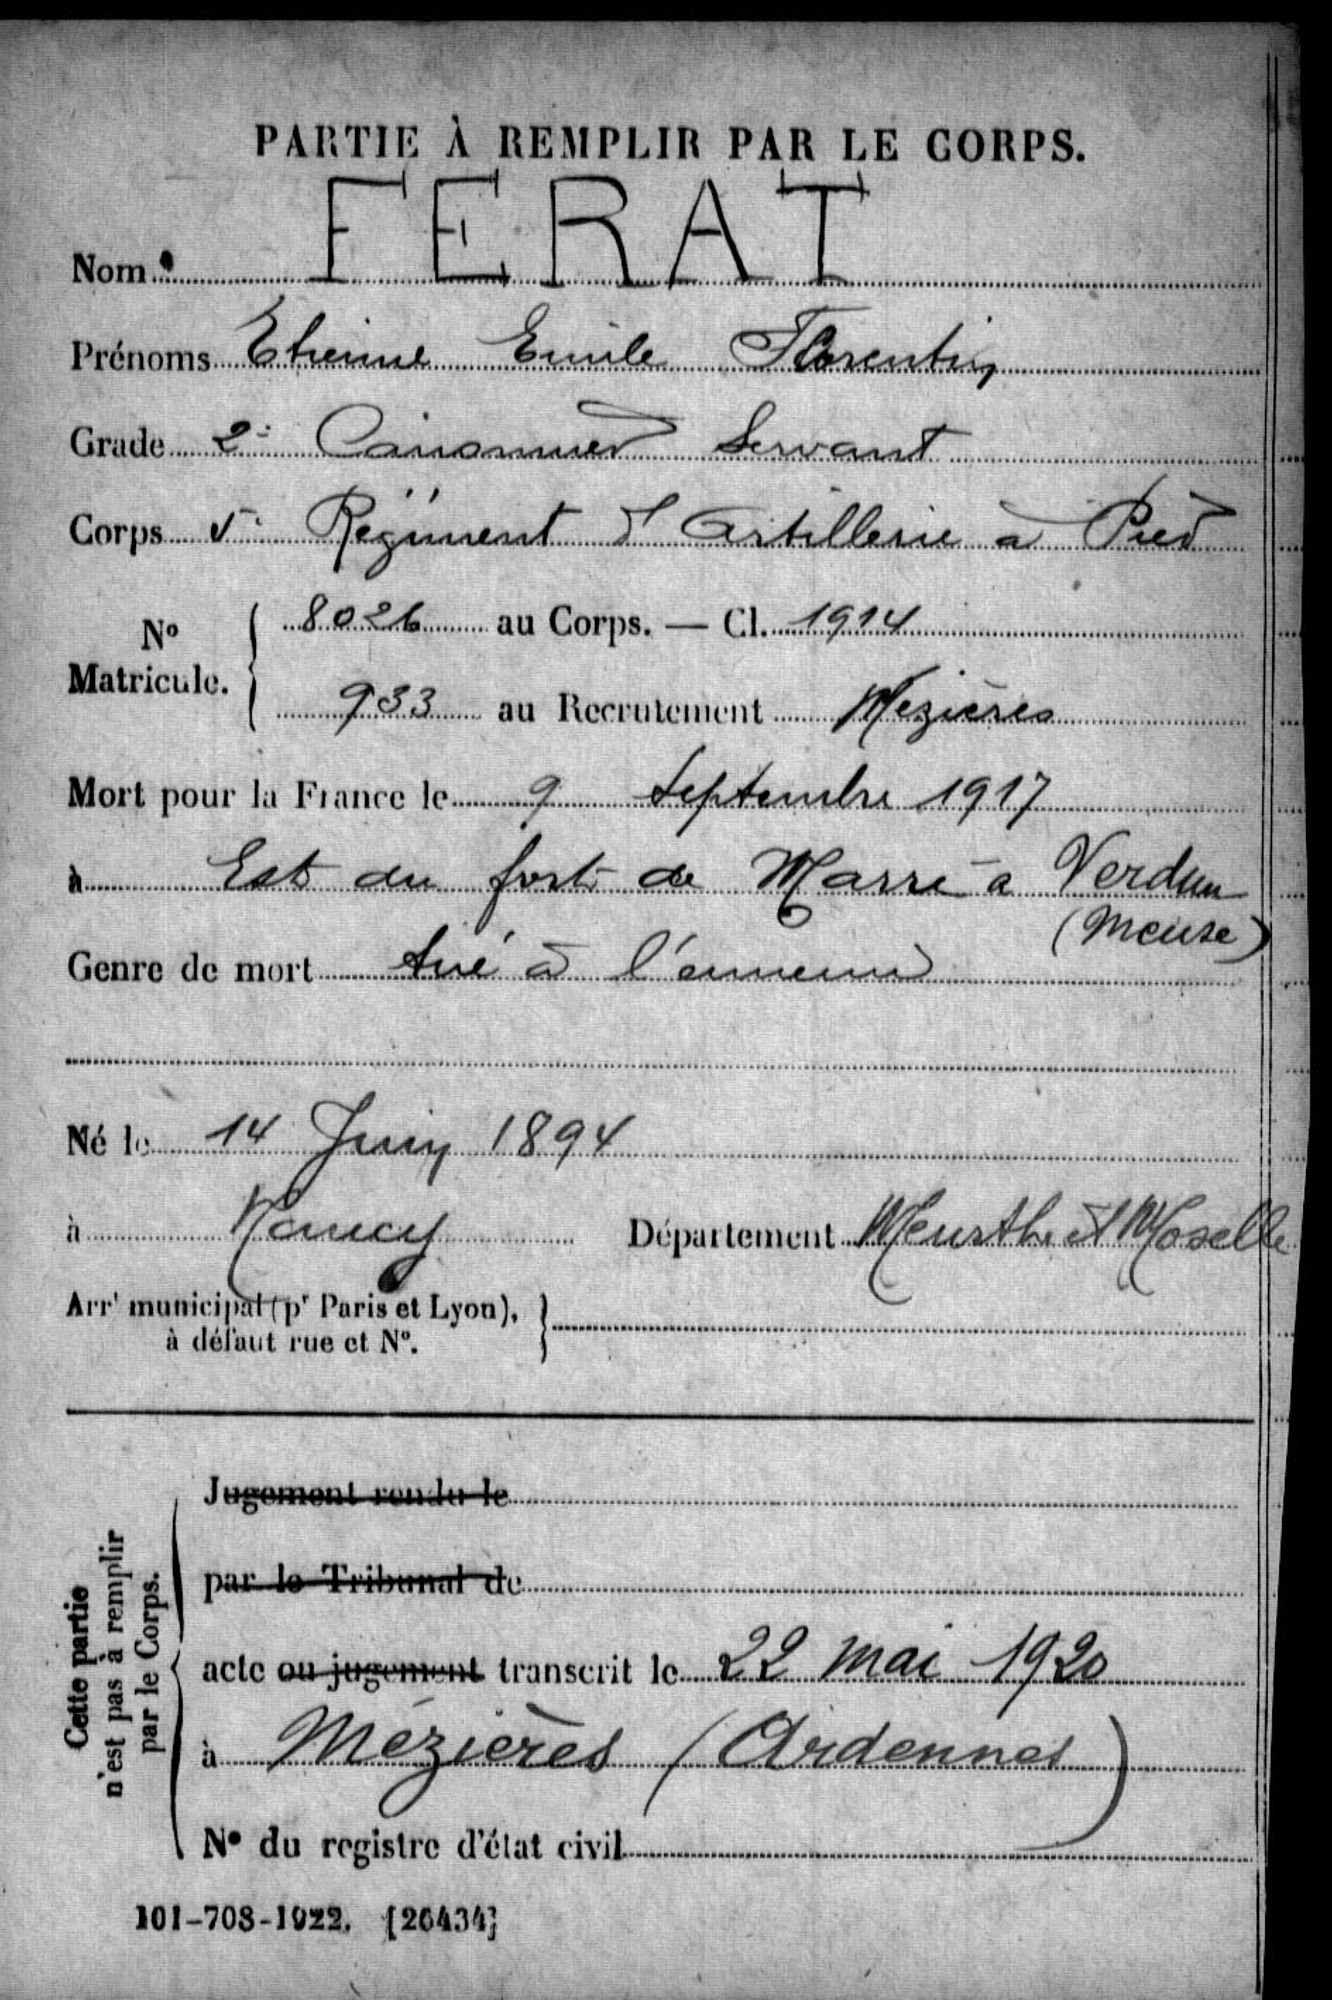 PARTIE À REMPLIR PAR LE CORPS.
Nom FERAT
Prénoms Etienne Emile Florentin
Grade 2e Canonnier Servant
Corps 5e Régiment d'Artillerie à Pied
No Matricule. { 8026 au Corps. — Cl. 1914
933 au Recrutement Mézières
Mort pour la France le 9 Septembre 1917
à Est du fort de Marre à Verdun
(Meuse)
Genre de mort tué à l'ennemi
Né le 14 Juin 1894
à Nancy Département Meurthe et Moselle
Arrt municipal (pr Paris et Lyon), }
à défaut rue et No.
Cette partie
n'est pas à remplir
par le Corps.
Jugement rendu le
par le Tribunal de
acte ou jugement transcrit le 22 mai 1920
à Mézières (Ardennes)
No du registre d'état civil
101-708-1922. [26434]